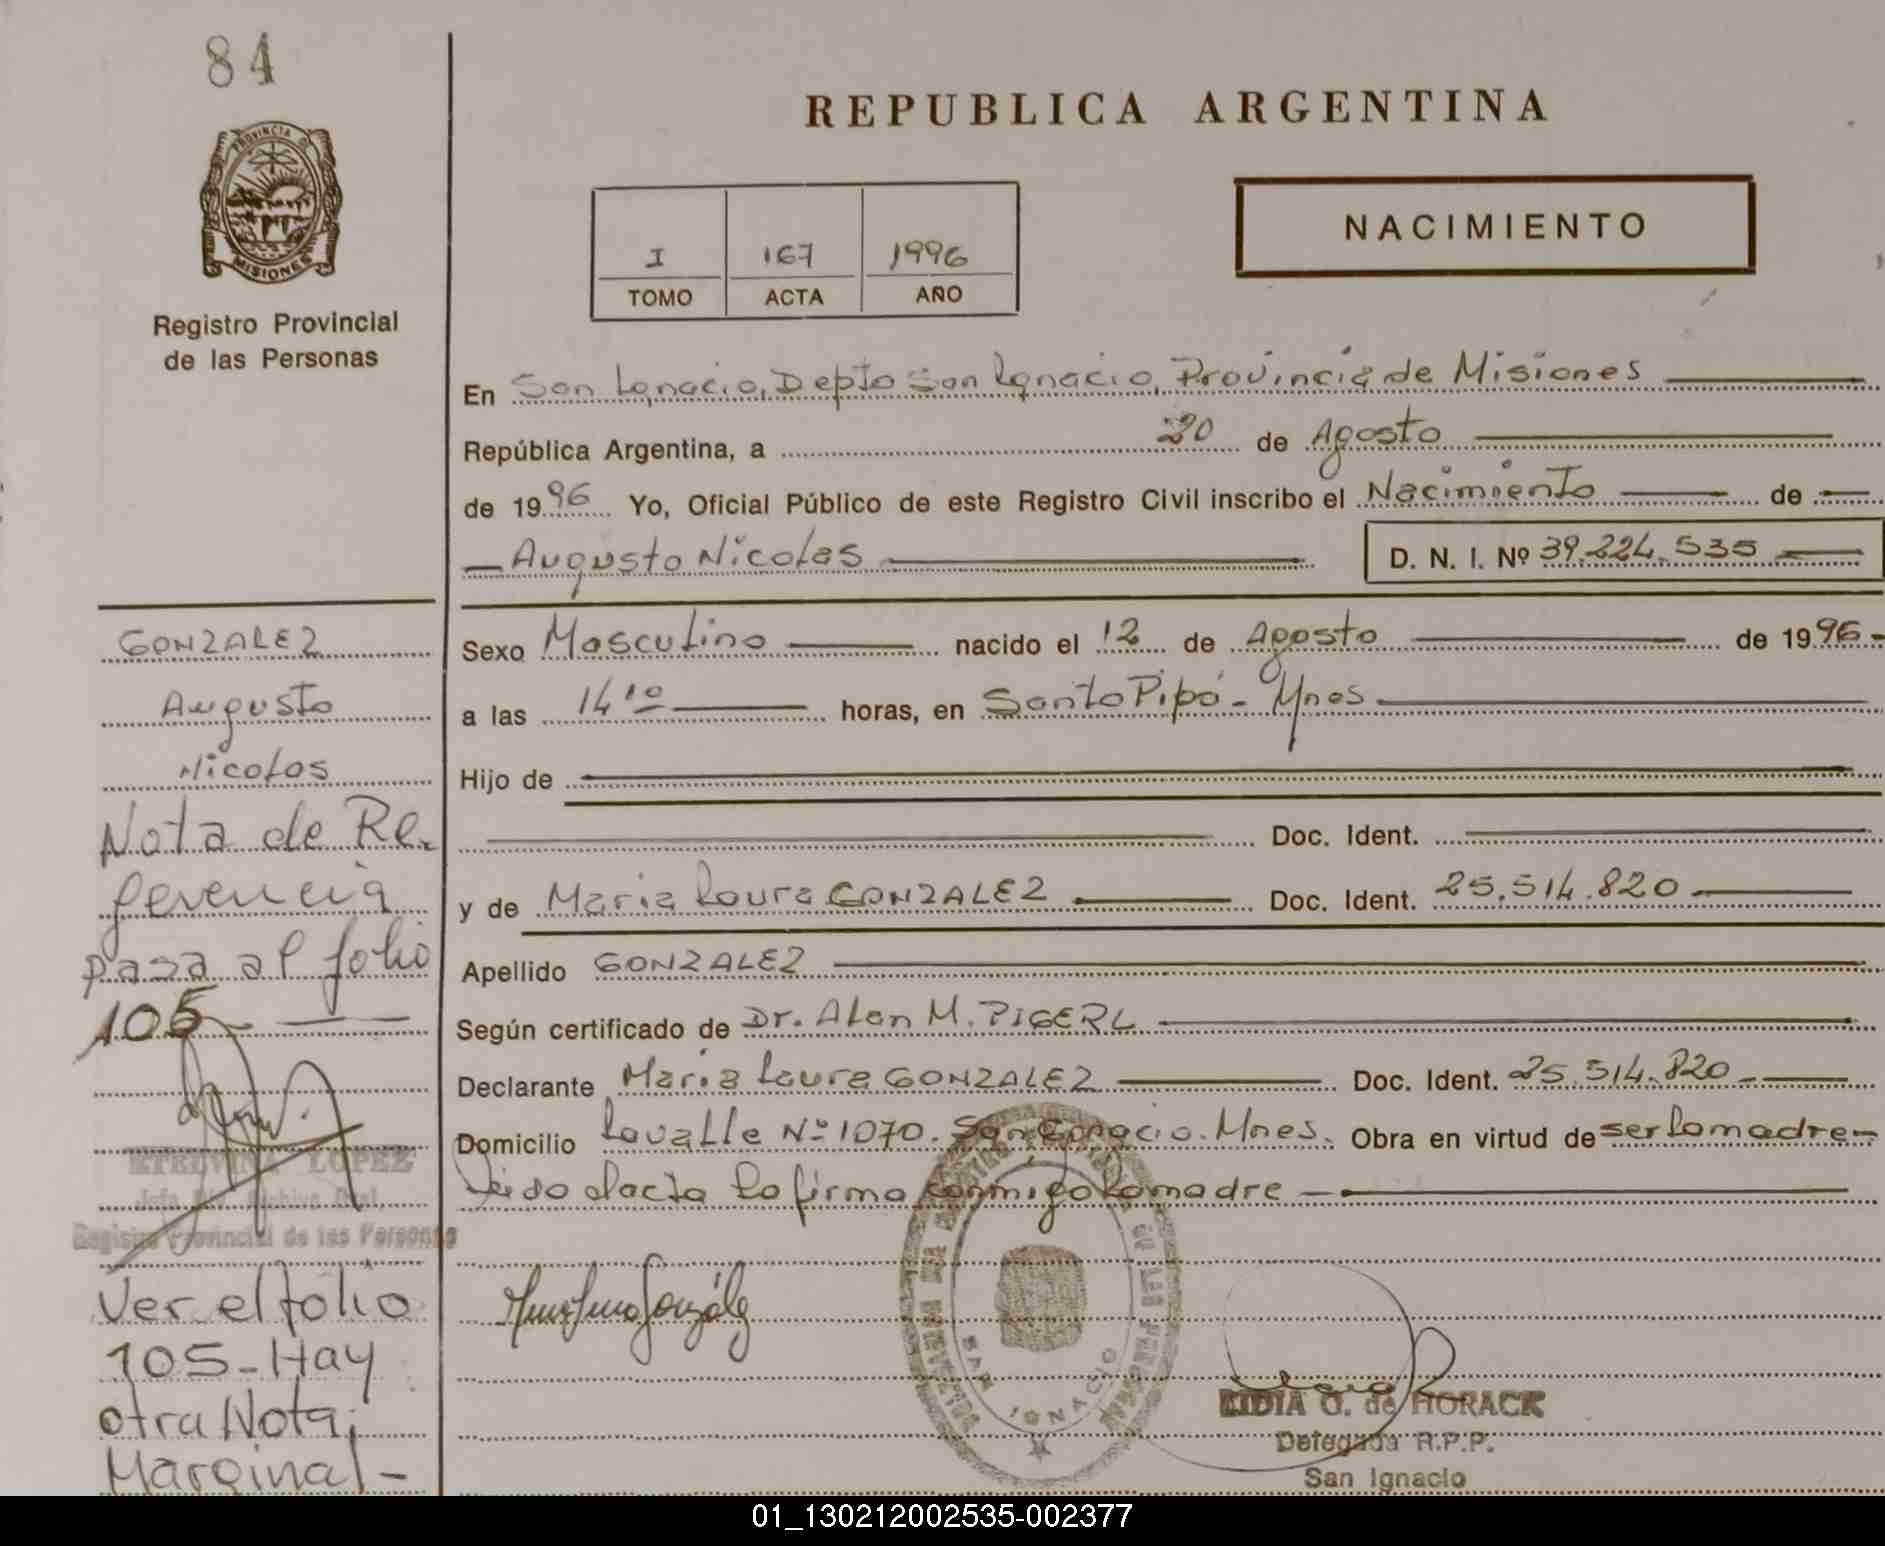 84
PROVINCIA D
MISIONES
Registro Provincial
de las Personas
REPUBLICA ARGENTINA
NACIMIENTO
I 167 1996
TOMO ACTA AÑO
En San Ignacio, Depto San Ignacio, Provincia de Misiones
República Argentina, a 20 de Agosto
de 1996 Yo, Oficial Público de este Registro Civil inscribo el Nacimiento de
Augusto Nicolas D. N. I. Nº 39.224.535
Sexo Masculino nacido el 12 de Agosto de 1996
a las 14 10 horas, en Santo Pipó - Mnes
Hijo de
Doc. Ident.
y de Maria Laura GONZALEZ Doc. Ident. 25.514.820
Apellido GONZALEZ
Según certificado de Dr. Alan M. PIGERL
Declarante Maria Laura GONZALEZ Doc. Ident. 25.514.820
Domicilio Lavalle Nº 1070. San Ignacio. Mnes. Obra en virtud de ser la madre
Leida el acta la firma conmigo la madre
GONZALEZ
Augusto
Nicolas
Nota de Re-
ferencia
pasa al folio
105
ETELVINA LOPEZ
Registro Provincial de las Personas
Ver el folio
105 - Hay
otra Nota
Marginal -
SAN IGNACIO
LIDIA O. de HORACK
Delegada R.P.P.
San Ignacio
01_130212002535-002377